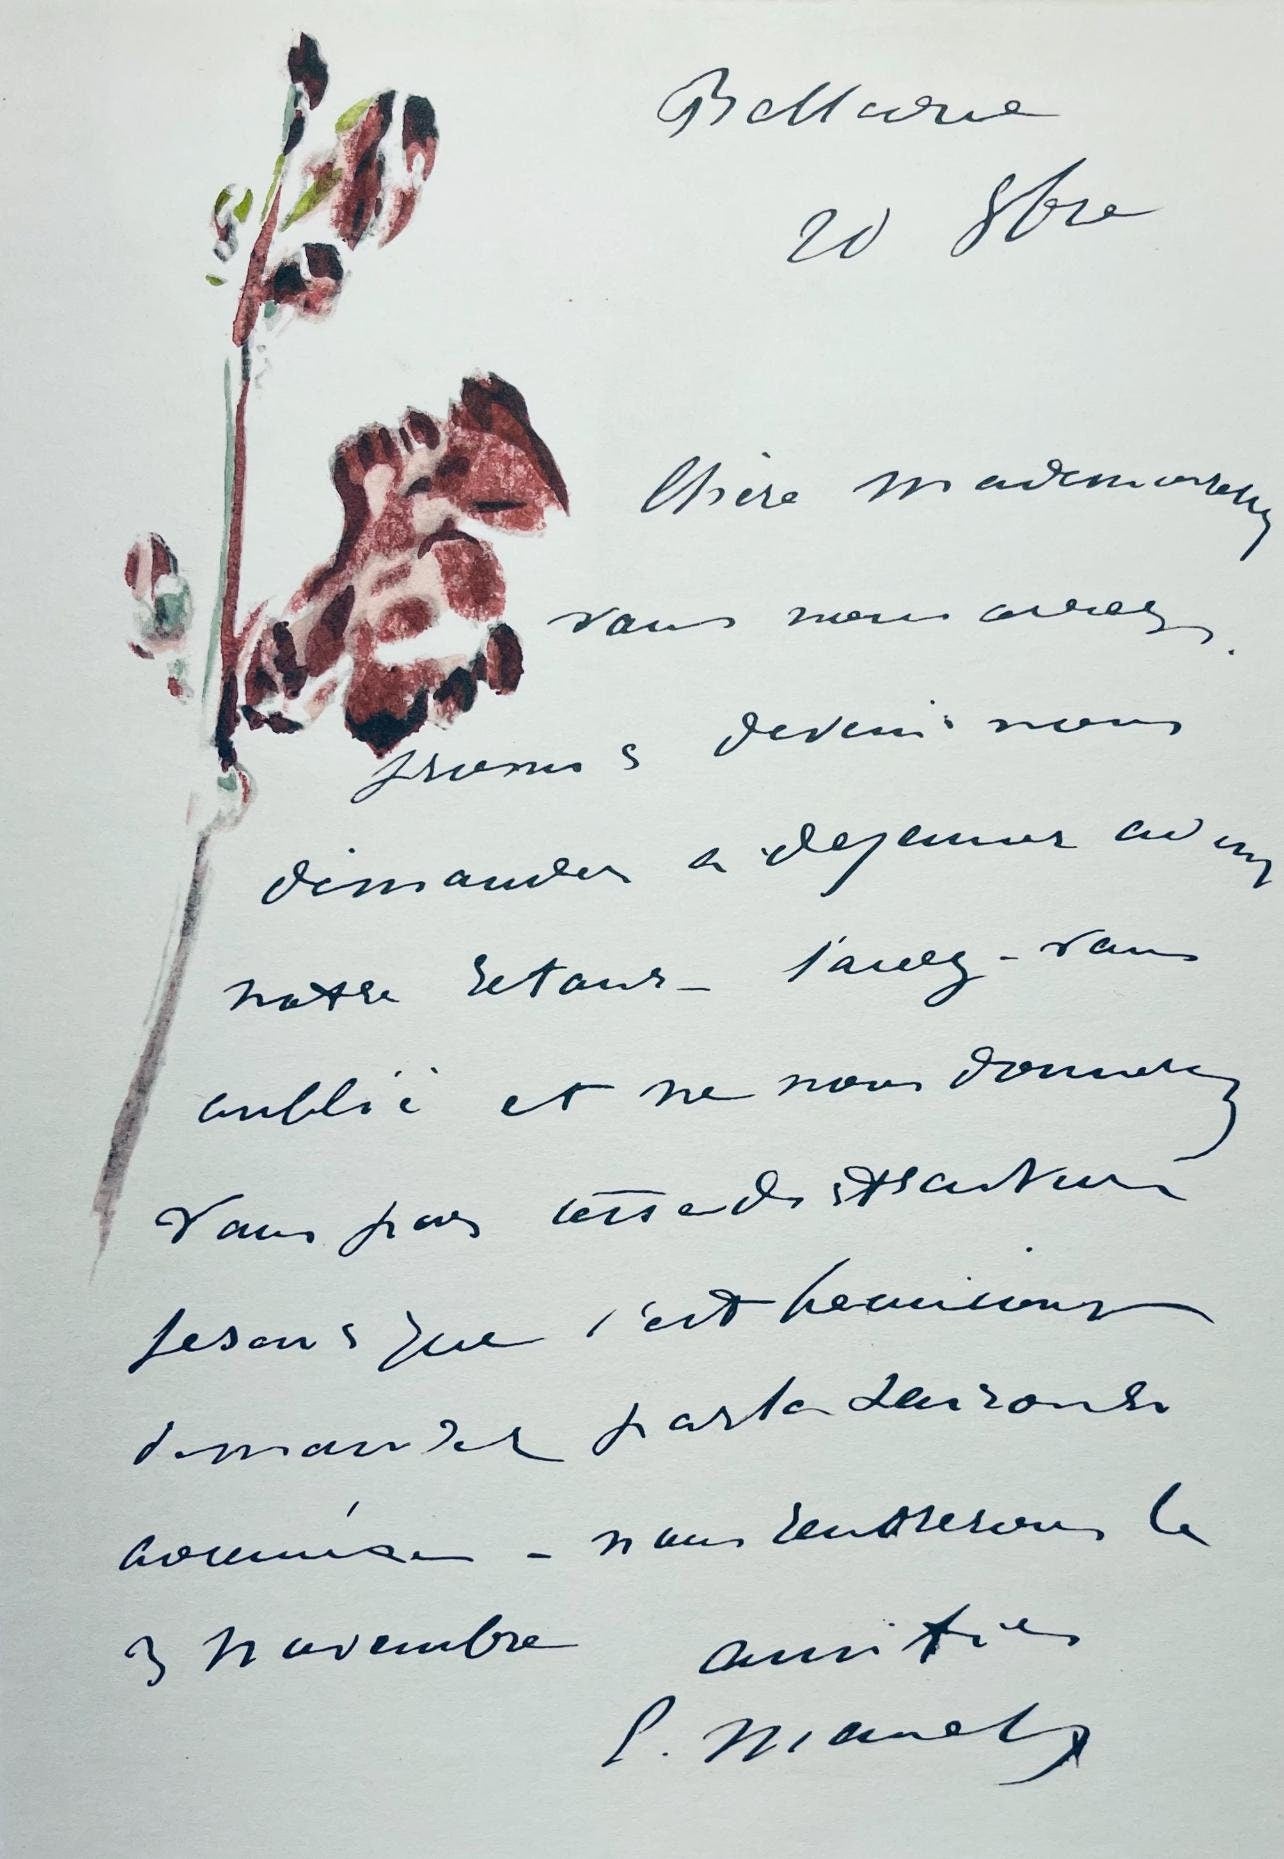 Bellevue
20 8bre
Chère Mademoiselle
vous nous aviez
promis de venir nous
demander a dejeuner avant
notre retour - l'avez-vous
oublié et ne nous donnerez
vous pas cette distraction
je sais que c'est beaucoup
demander par la saison
nous rentrerons le
3 Novembre amitiés
E. Manet